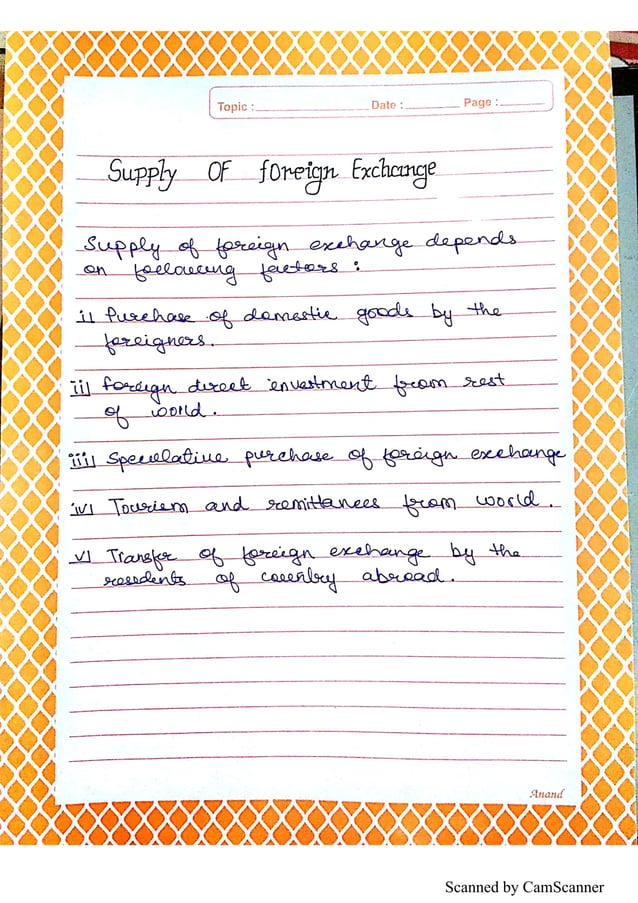 Topic : Date : Page :
Supply OF foreign Exchange
Supply of foreign exchange depends
on following factors :
i) Purchase of domestic goods by the
foreigners.
ii) foreign direct investment from rest
of world.
iii) Speculative purchase of foreign exchange
iv) Tourism and remittances from world.
v) Transfer of foreign exchange by the
residents of country abroad.
Anand
Scanned by CamScanner